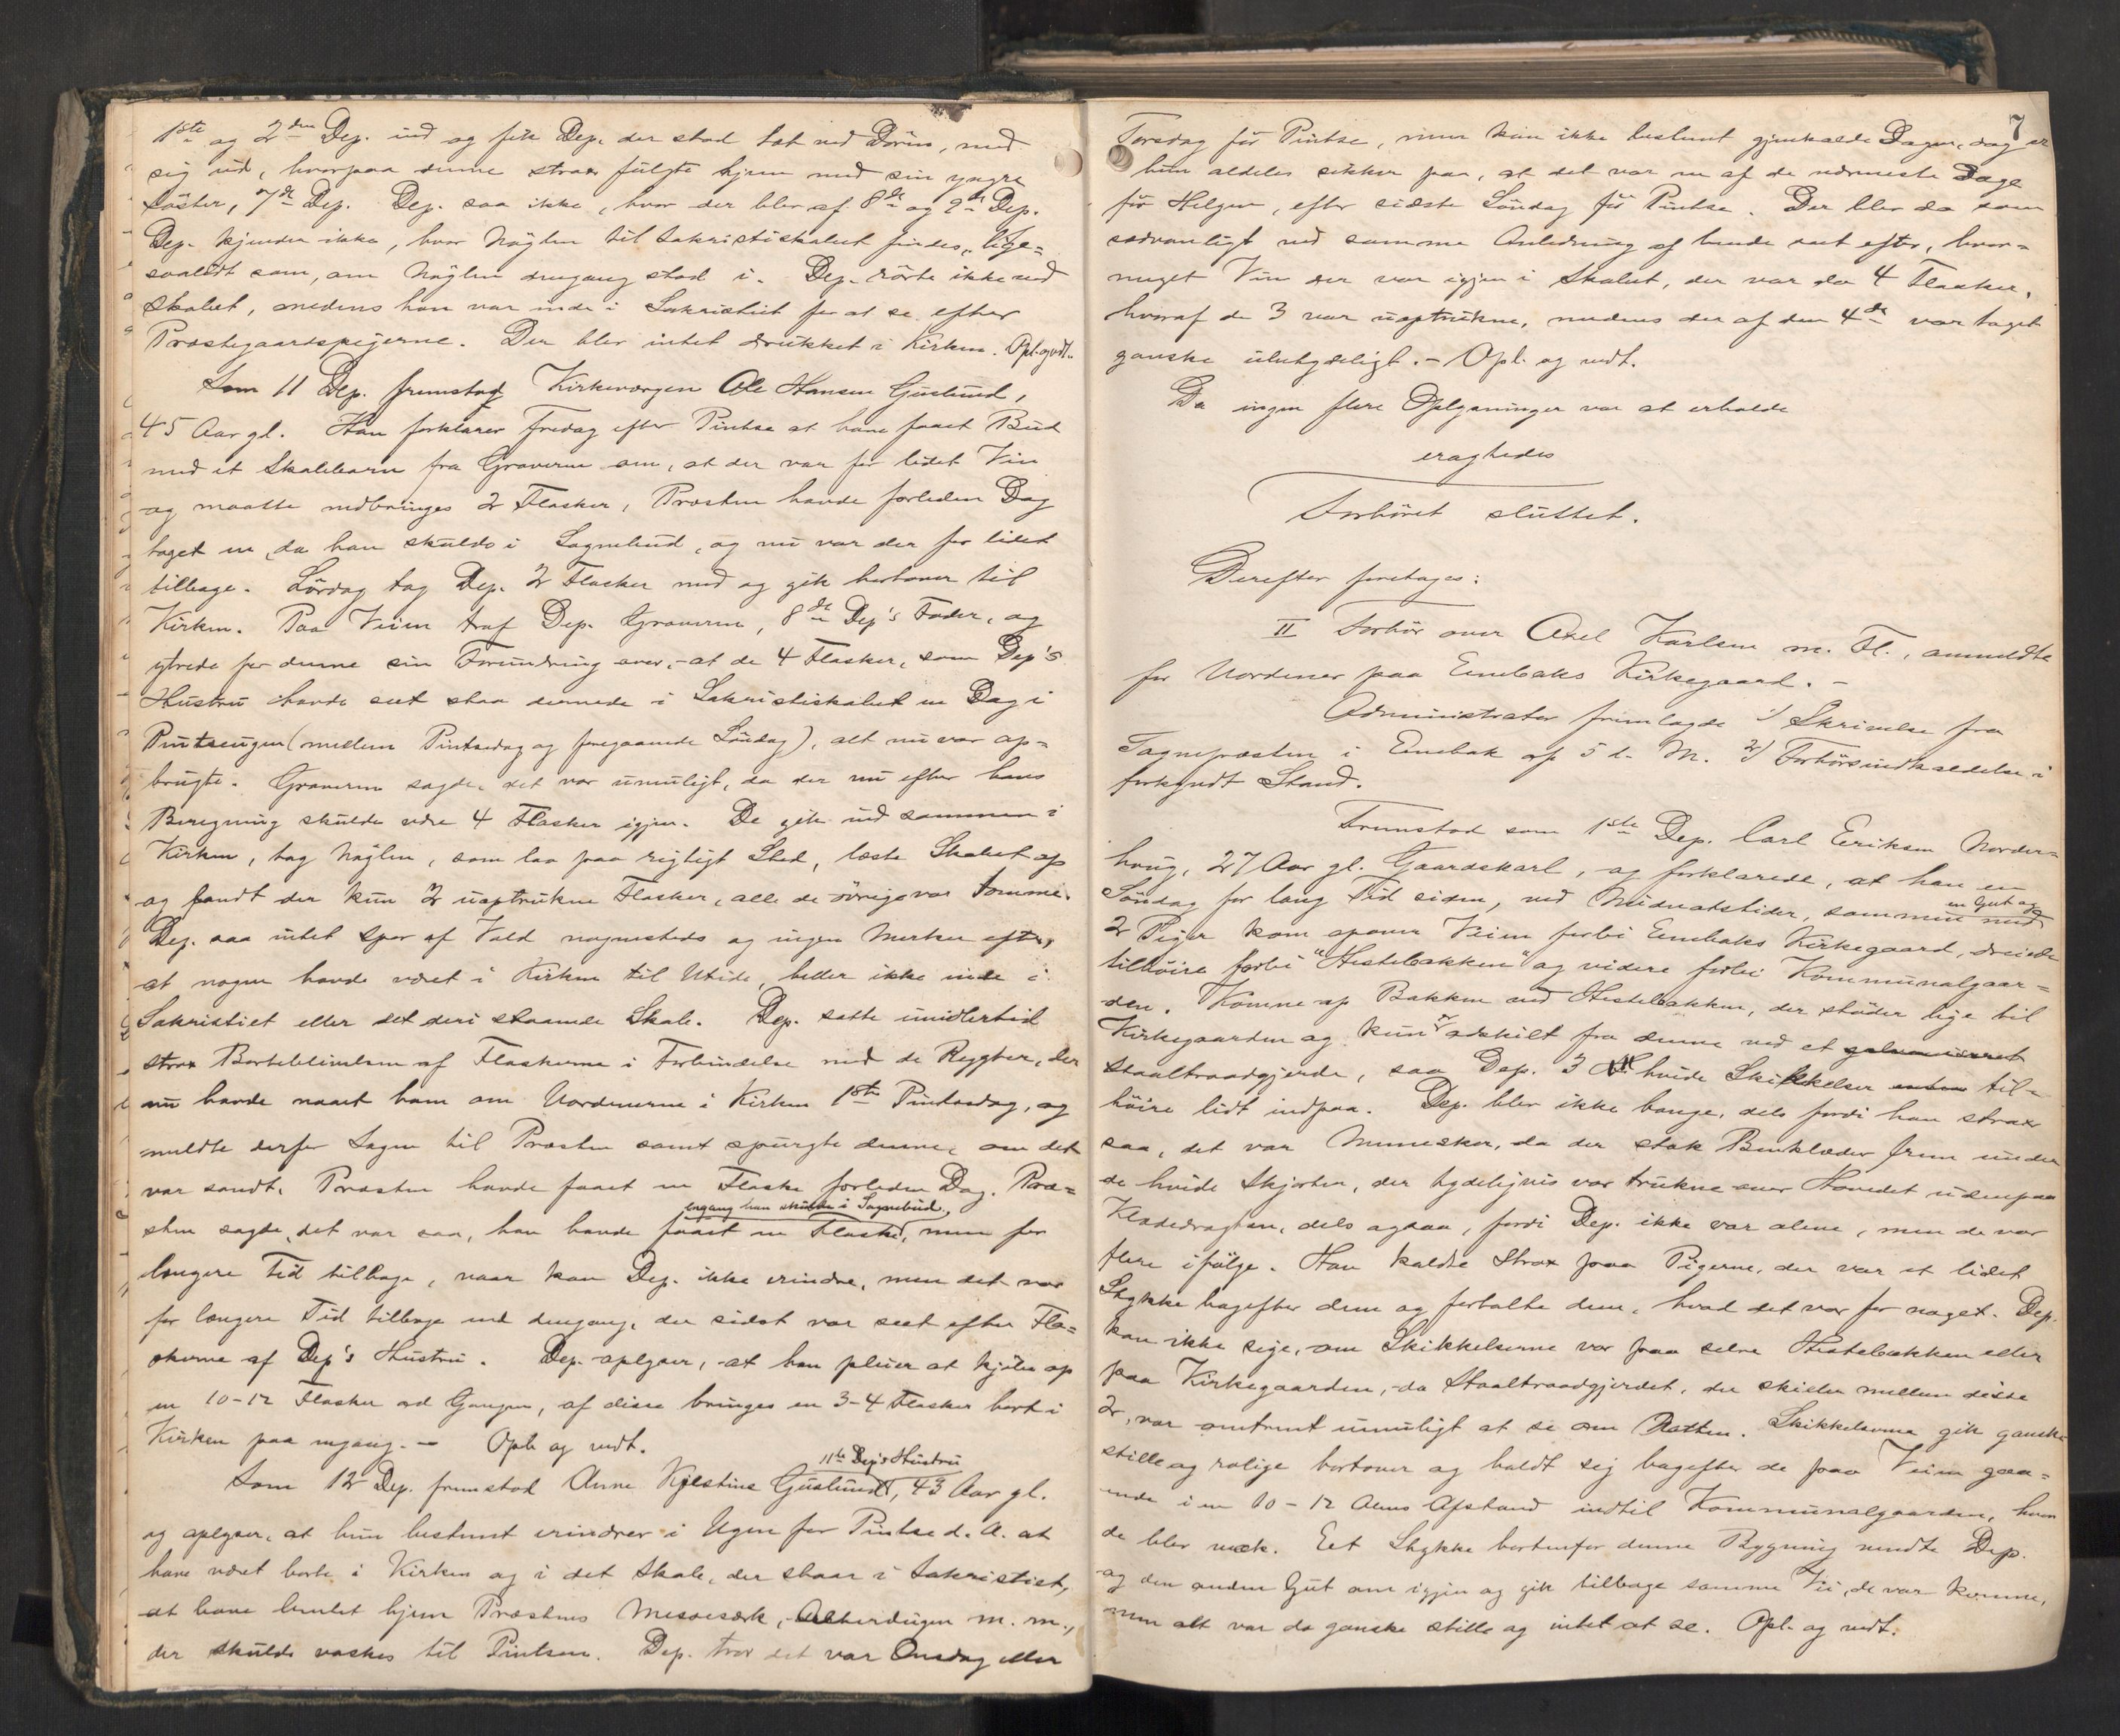 1ste og 2den Dep. ind og fik Dep. der stod tæt ved Døren, med
sig ud, hvorpaa denne strax fulgte hjem med sin yngre
Søster, 7de Dep. Dep. saa ikke, hvor der blev af 8de og 9de Dep.
Dep. kjender ikke, hvor Nøglen til Sakristiskabet findes, lige=
saalidt som, om Nøglen dengang stod i. Dep. rørte ikke ved
Skabet, medens han var inde i Sakristiet for at se efter
Præstegaardspigerne. Der blev intet drukket i Kirken. Opl. og vedt.
Som 11 Dep. fremstod Kirkeværgen Ole Hansen Guslund,
45 Aar gl. Han forklarer Fredag efter Pintse at have faaet Bud
med et Skolebarn fra Graveren om, at der var for lidet Vin
og maatte medbringes 2 Flasker, Præsten havde forleden Dag
taget en, da han skulde i Sognebud, og nu var der for lidet
tilbage. Lørdag tog Dep. 2 Flasker med og gik bortover til
Kirken. Paa Veien traf Dep. Graveren, 8de Dep's Fader, og
ytrede for denne sin Forundring over, at de 4 Flasker, som Dep's
Hustru havde seet staa dernede i Sakristiskabet en Dag i
Pintseugen (mellem Pintsedag og foregaaende Søndag), alt nu var op=
brugte. Graveren sagde, det var umuligt, da der nu efter hans
Beregning skulde være 4 Flasker igjen. De gik ind sammen i
Kirken, tog Nøglen, som laa paa rigtigt Sted, læste Skabet op
og fandt der kun 2 uoptrukne Flasker, alle de øvrige var tomme.
Dep. saa intet Spor af Vold nogensteds og ingen Merker efter,
at nogen havde været i Kirken til Utide, heller ikke inde i
Sakristiet eller det deri staaende Skab. Dep. satte imidlertid
strax Bortblivelsen af Flaskerne i Forbindelse med de Rygter, der
nu havde naaet ham om Uordenerne i Kirken 1ste Pintsedag, og
meldte derfor Sagen til Præsten samt spurgte denne, om det
var sandt, Præsten havde faaet en Flaske forleden Dag. Præ=
engang han skulde i Sognebud,
sten sagde, det var saa, han havde faaet en Flaske, men for
længere Tid tilbage, naar kan Dep. ikke erindre, men det var
for længere Tid tilbage end dengang, der sidst var seet efter Fla=
skerne af Dep's Hustru. Dep. oplyser, at han pleier at kjøbe op
en 10-12 Flasker ad Gangen, af disse bringes en 3-4 Flasker bort i
Kirken paa engang. — Opl. og vedt.
11te Dep's Hustru
Som 12 Dep. fremstod Anne Kjestine Guslund, 43 Aar gl.
og oplyser, at hun bestemt erindrer i Ugen før Pintse d. A. at
have været borte i Kirken og i det Skab, der staar i Sakristiet,
at have hentet hjem Præstens Messesærk, Alterdugen m. m.,
der skulde vaskes til Pintsen. Dep. tror det var Onsdag eller
7
Torsdag før Pintse, men kan ikke bestemt gjenkalde Dagen, dog er
hun aldeles sikker paa, at det var en af de nærmeste Dage
før Helgen, efter sidste Søndag før Pintse. Der blev da som
sædvanligt ved samme Anledning af hende seet efter, hvor=
meget Vin der var igjen i Skabet, der var da 4 Flasker,
hvoraf de 3 var uoptrukne, medens der af den 4de var taget
ganske ubetydeligt. — Opl. og vedt.
Da ingen flere Oplysninger var at erholde
eragtedes
Forhøret sluttet.
Derefter foretoges:
II Forhør over Axel Karlsen m. Fl., anmeldte
for Uordener paa Enebaks Kirkegaard. —
Administrator fremlagde 1) Skrivelse fra
Sognepræsten i Enebak af 5 d. M. 2) Forhørsindkaldelse i
forkyndt Stand.
Fremstod som 1ste Dep. Carl Eriksen Norder=
haug, 27 Aar gl. Gaardskarl, og forklarede, at han en
Søndag for lang Tid siden, ved Midnatstider, sammen med
en Gut og
2 Piger kom opover Veien forbi Enebaks Kirkegaard, dreiede
tilhøire forbi "Hestebakken" og videre forbi Kommunalgaar=
den. Komne op Bakken ved Hestebakken, der støder lige til
Kirkegaarden og kun er adskilt fra denne ved et galvaniseret
Staaltraadgjerde, saa Dep. 3 hvide Skikkelser til=
høire lidt indpaa. Dep. blev ikke bange, dels fordi han strax
saa, det var Mennesker, da der stak Benklæder frem under
de hvide Skjorter, der tydeligvis var trukne over Hovedet udenpaa
Klædedragten, dels ogsaa, fordi Dep. ikke var alene, men de var
flere ifølge. Han kaldte strax paa Pigerne, der var et lidet
Stykke bagefter dem og fortalte dem, hvad det var for noget. Dep.
kan ikke sige, om Skikkelserne var paa selve Hestebakken eller
paa Kirkegaarden, da Staaltraadgjerdet, der skiller mellem disse
2, var omtrent umuligt at se om Natten. Skikkelserne gik ganske
stille og rolige bortover og holdt sig bagefter de paa Veien gaa=
ende i en 10-12 Alens Afstand indtil Kommunalgaarden, hvor
de blev væk. Eet Stykke bortenfor denne Bygning vendte Dep.
og den anden Gut om igjen og gik tilbage samme Vei, de var komne,
men alt var da ganske stille og intet at se. Opl. og vedt.